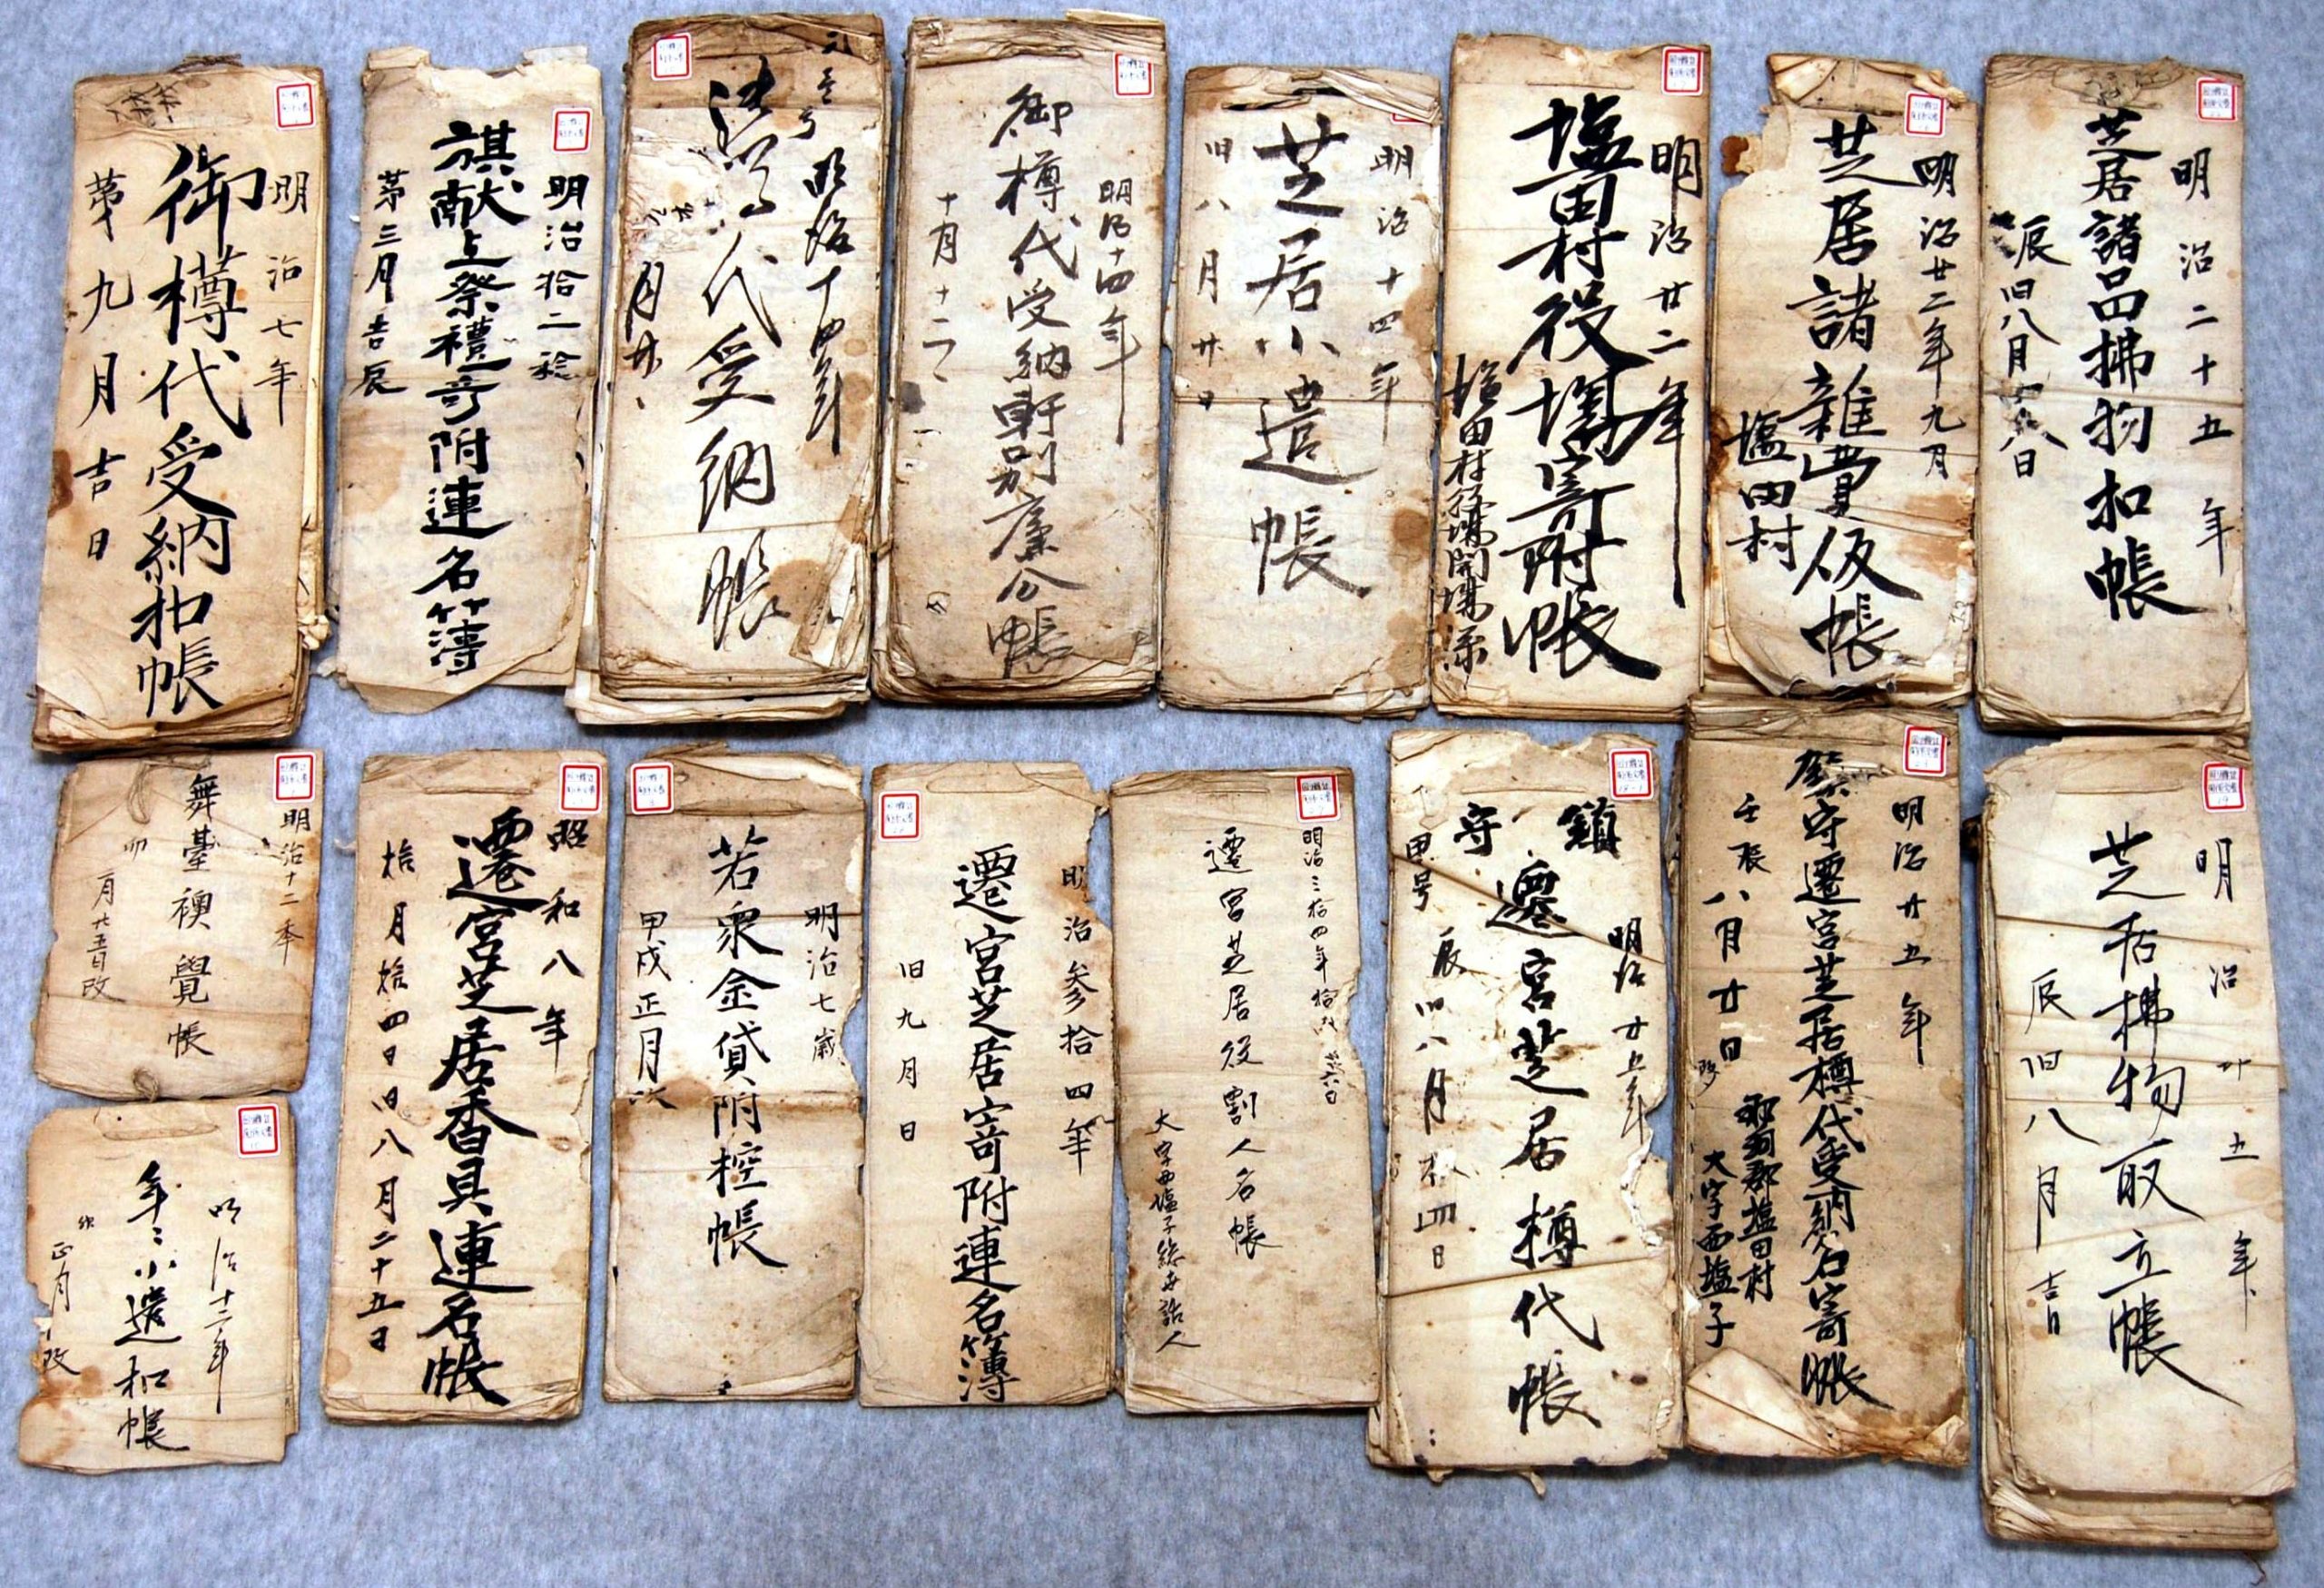 明治七年
御樽代受納扣帳
第九月吉日
明治拾二稔
旗献上祭禮寄附連名簿
第三月吉辰
明治十四年
代受納帳
明治十四年
御樽代受納軒別廉分帳
十月十二
明治十四年
芝居小遣帳
旧八月廿日
明治廿二年
塩田村役場寄附帳
塩田村役場開場ニ係
明治廿二年九月
芝居諸雑費仮帳
塩田村
明治二十五年
芝居諸品拂物扣帳
辰旧八月
明治十二年
舞臺襖覺帳
卯
一月廿五日改
明治十二年
年々小遣扣帳
正月改
昭和八年
遷宮芝居香具連名帳
拾月拾四日旧八月二十五日
明治七歳
若衆金貸附控帳
甲戌正月改
明治参拾四年
遷宮芝居寄附連名簿
旧九月日
明治三拾四年拾月廿六日
遷宮芝居役割人名帳
大字西塩子総世話人
鎮守
明治廿五年
遷宮芝居樽代帳
甲号
辰旧八月
明治廿五年
鎮守遷宮芝居樽代受納名寄帳
壬辰八月廿日
那珂郡塩田村
大字西塩子
明治廿五年
芝居拂物取立帳
辰旧八月吉日